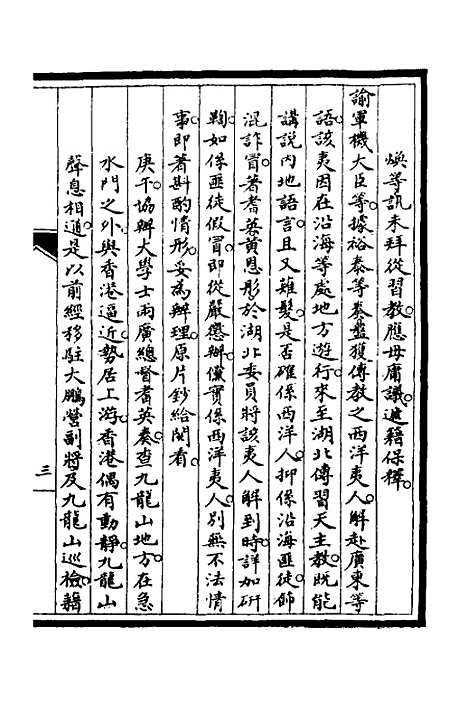 煥等訊未拜從習教應毋庸議遞籍保釋
諭軍機大臣等據裕泰等奏盤獲傳教之西洋夷人解赴廣東等
語該夷因在沿海等處地方遊行來至湖北傳習天主教既能
講說內地語言且又薙髮是否確係西洋人抑係沿海匪徒飾
混詐冒著耆英黃恩彤於湖北委員將該夷人解到時詳加研
鞫如係匪徒假冒即從嚴懲辦儻實係西洋夷人別無不法情
事即著斟酌情形妥為辦理原片鈔給閱看
庚午協辦大學士兩廣總督耆英奏查九龍山地方在急
水門之外與香港逼近勢居上游香港偶有動靜九龍山
聲息相通是以前經移駐大鵬營副將及九龍山巡檢籍
三